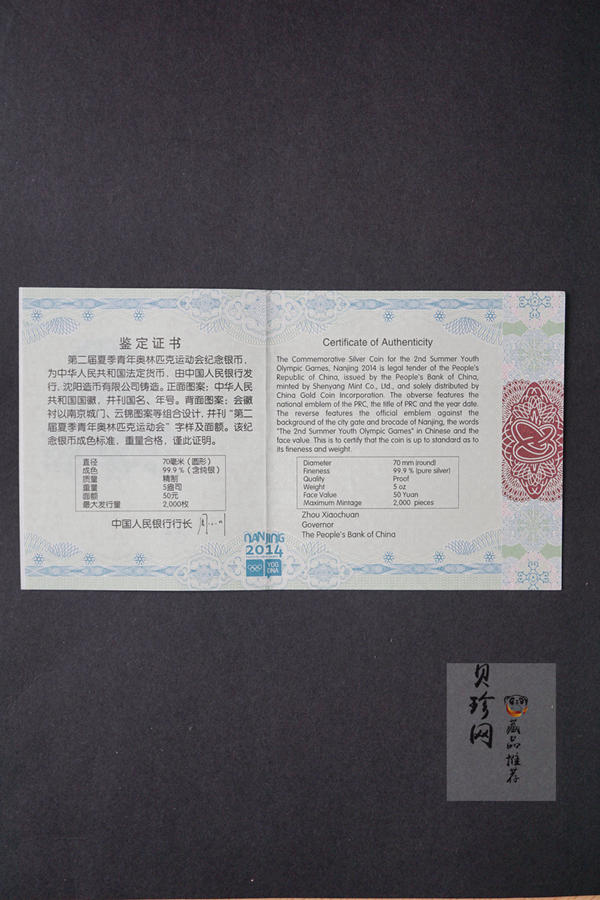 鉴定证书
第二届夏季青年奥林匹克运动会纪念银币，
为中华人民共和国法定货币，由中国人民银行发
行，沈阳造币有限公司铸造。正面图案：中华人民
共和国国徽，并刊国名、年号。背面图案：会徽
衬以南京城门、云锦图案等组合设计，并刊“第二
届夏季青年奥林匹克运动会”字样及面额。该纪
念银币成色标准，重量合格，谨此证明。
直径 70毫米（圆形）
成色 99.9％（含纯银）
质量 精制
重量 5盎司
面额 50元
最大发行量 2,000枚
中国人民银行行长
Certificate of Authenticity
The Commemorative Silver Coin for the 2nd Summer Youth
Olympic Games, Nanjing 2014 is legal tender of the People's
Republic of China, issued by the People's Bank of China,
minted by Shenyang Mint Co., Ltd., and solely distributed by
China Gold Coin Incorporation. The obverse features the
national emblem of the PRC, the title of PRC and the year date.
The reverse features the official emblem against the
background of the city gate and brocade of Nanjing, the words
"The 2nd Summer Youth Olympic Games" in Chinese and the
face value. This is to certify that the coin is up to standard as to
its fineness and weight.
Diameter 70 mm (round)
Fineness 99.9 % (pure silver)
Quality Proof
Weight 5 oz
Face Value 50 Yuan
Maximum Mintage 2,000 pieces
Zhou Xiaochuan
Governor
The People's Bank of China
NANJING
2014
YOG
DNA
贝珍网
藏品推荐